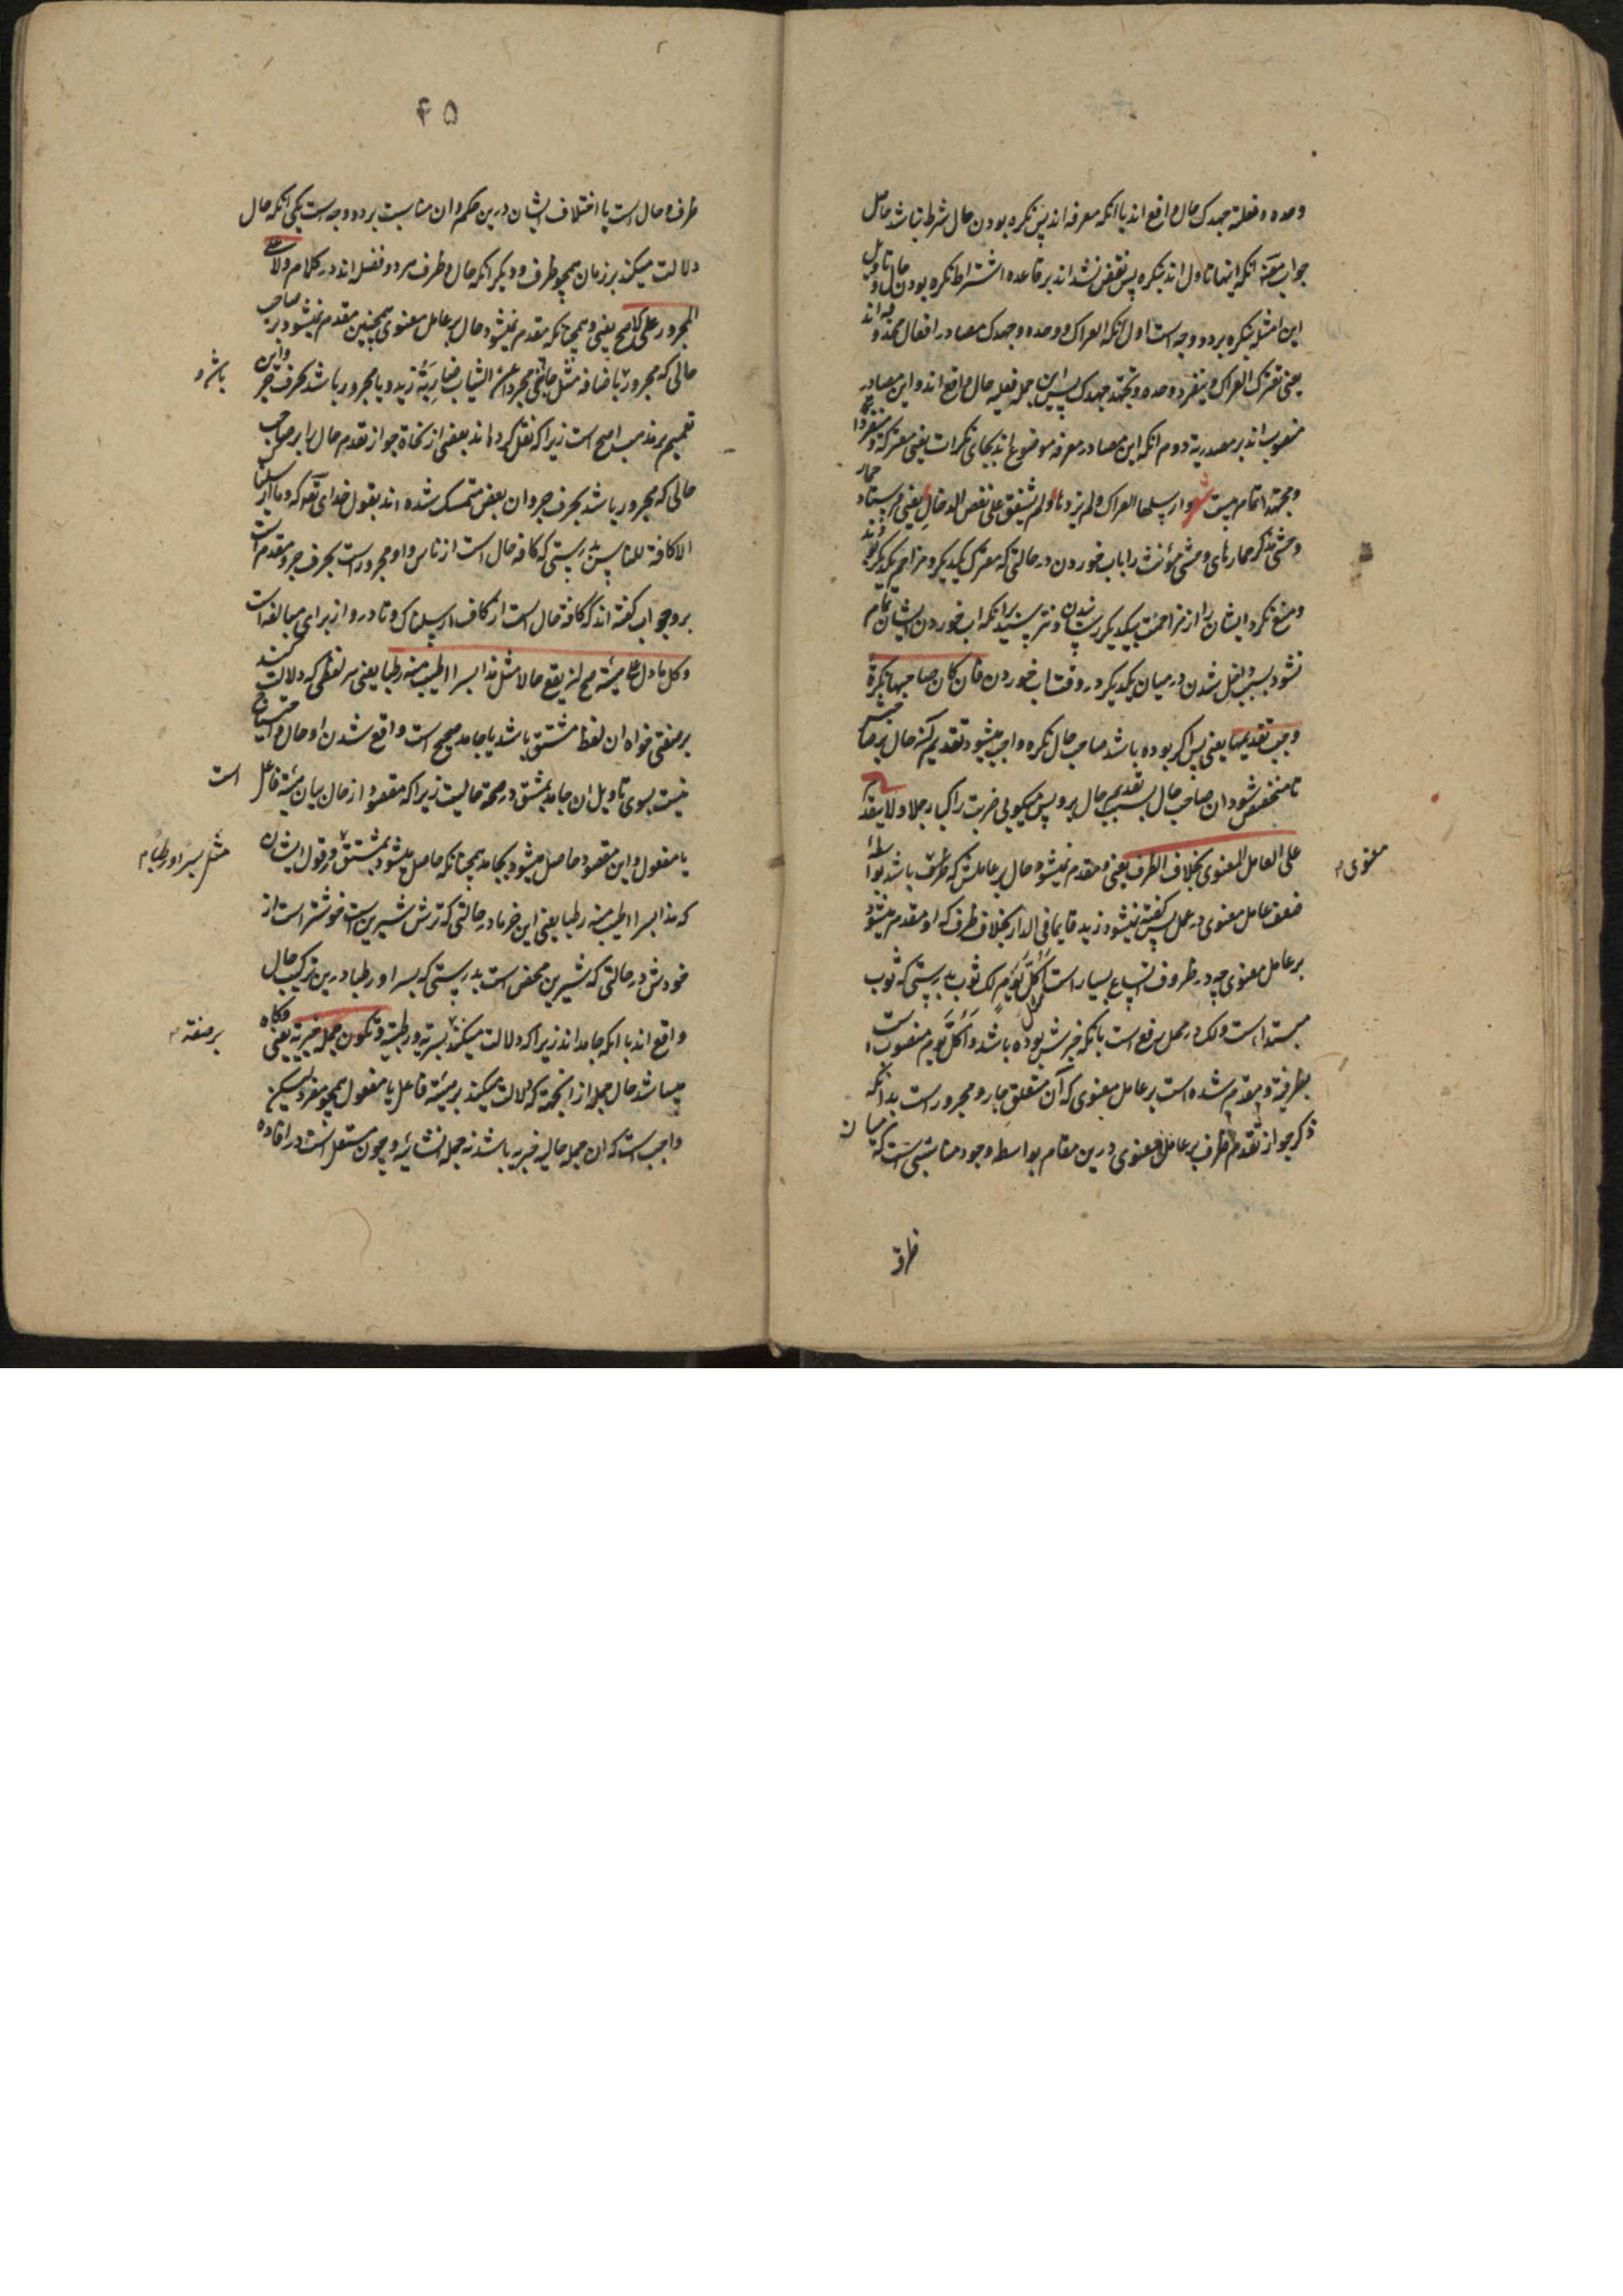 وحده و فعلته جهدک حال واقع اند با انکه معرفه اند پس نکره بودن حال شرط نباشد حاصل
جواب معنه انکه اینها تاول اند بنکره پس نقض نشد اند بر قاعده اشتراط نکره بودن حال و تاویل
این امثله بنکره بر دو وجه است اول انکه العراک و وحده و جهدک مصادر افعال محذوفه اند
یعنی تعترک العراک و ینفرد وحده و تجتهد جهدک پس این جمله فعلیه حال واقع اند و این مصادر
منصوب اند بر مصدریه دوم انکه این مصادر معرفه موضوع اند بجای نکرات یعنی معترکة و منفردا
و مجتهدا تمام بیت شعر و ارسلها العراک و لم یزدها و لم یشفق علی نغص الدخال یعنی فرستاد حمار
وحشی مذکر حمارهای وحشی مؤنث را باب خوردن در حالتی که معترک یکدیگر و مزاحم یکدیگر بودند
و منع نکرد ایشان را از مزاحمت یکدیگر رسانیدن و نترسید برانکه اب خوردن ایشان تمام
نشود بسبب داخل شدن در میان یکدیگر در وقت اب خوردن فان کان صاحبها نکرة
وجب تقدیمها یعنی پس اگر بوده باشد صاحب حال نکره واجب میشود تقدیم کردن حال بر صاحبش
تا متخصص شود ان صاحب حال بسبب تقدیم حال برو پس میگویی ضربت راکبا رجلا و لا یتقدم
علی العامل المعنوی بخلاف الظرف یعنی و متقدم نمیشود حال بر عاملش که ظرف باشد بواسطهٔ
معنوی
ضعف عامل معنوی در عمل پس گفته نمیشود زید قایما فی الدار بخلاف ظرف که او مقدم میشود
بر عامل معنوی چه در ظروف اتساع بسیار است اَکُلَّ یَوْمٍ لک ثوب بدرستی که ثوب
مبتداست و لک در محل رفع است بانکه خبرش بوده باشد و اَکُلَّ یَوْم منصوب است
بظرفیة و مقدم شده است بر عامل معنوی که آن متعلق جار و مجرور است بدانکه
ذکر جواز تقدم ظرف بر عامل معنوی درین مقام بواسطه وجود مناسبتی است که میان
ظرف
۴۵
ظرف و حال است یا اختلاف ایشان درین حکم و ان مناسبت بر دو وجه است یکی انکه حال
دلالت میکند بر زمان همچو ظرف و دیگر انکه حال و ظرف هر دو فضله اند در کلام و لا علی
المجرور علی الاصح یعنی و همچنانکه مقدم نمیشود حال بر عامل معنوی همچنین مقدم نمیشود بر صاحب
حالی که مجرور باضافه مثل جائنی مجردا عن الثیاب ضاربة زید و یا مجرور باشد بحرف جر و این
باشد و
تعمیم بر مذهب اصح است زیرا که نقل کرده اند بعضی از نحاة جواز تقدم حال را بر صاحب
حالی که مجرور باشد بحرف جر و ان بعض متمسک شده اند بقول خدای تعه که و ما ارسلناک
الا کافة للناس بدرستی که کافه حال است از ناس و او مجرور است بحرف جر و مقدم است
برو جواب گفته اند که کافة حال است از کاف ارسلناک و تا درو از برای مبالغه است
و کل ما دل علی هیئة صح ان یقع حالا مثل هذا بسرا اطیب منه رطبا یعنی هر لفظی که دلالت کند
بر صفتی خواه ان لفظ مشتق باشد یا جامد صحیح است واقع شدن او حال و احتیاج
نیست بسوی تاویل ان جامد بمشتق در صحة حالیت زیرا که مقصود از حال بیان هیئة فاعل است
یا مفعول و این مقصود حاصل میشود بجامد همچنانکه حاصل میشود بمشتق در قول ایشان
مثل بسرا و رطبا
که هذا بسرا اطیب منه رطبا یعنی این خرما در حالتی که ترش شیرین است خوشتر است از
خودش در حالتی که شیرین محض است بدرستی که بسرا و رطبا درین ترکیب حال
واقع اند با انکه جامد اند زیرا که دلالت میکنند بسریه و رطبیة و تکون جملة خبریة یعنی و کاه
بر صفة
میباشد حال جمله از انجهة که دلالت میکند بر هیئة فاعل یا مفعول همچو مفرد لیکن
واجب است که ان جمله حالیه خبریه باشد نه جمله انشائیه و چون مستقل است در افاده